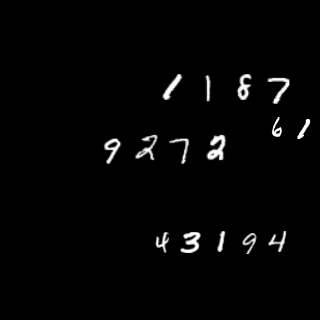 1 1 8 7
6 1
9 2 7 2
4 3 1 9 4